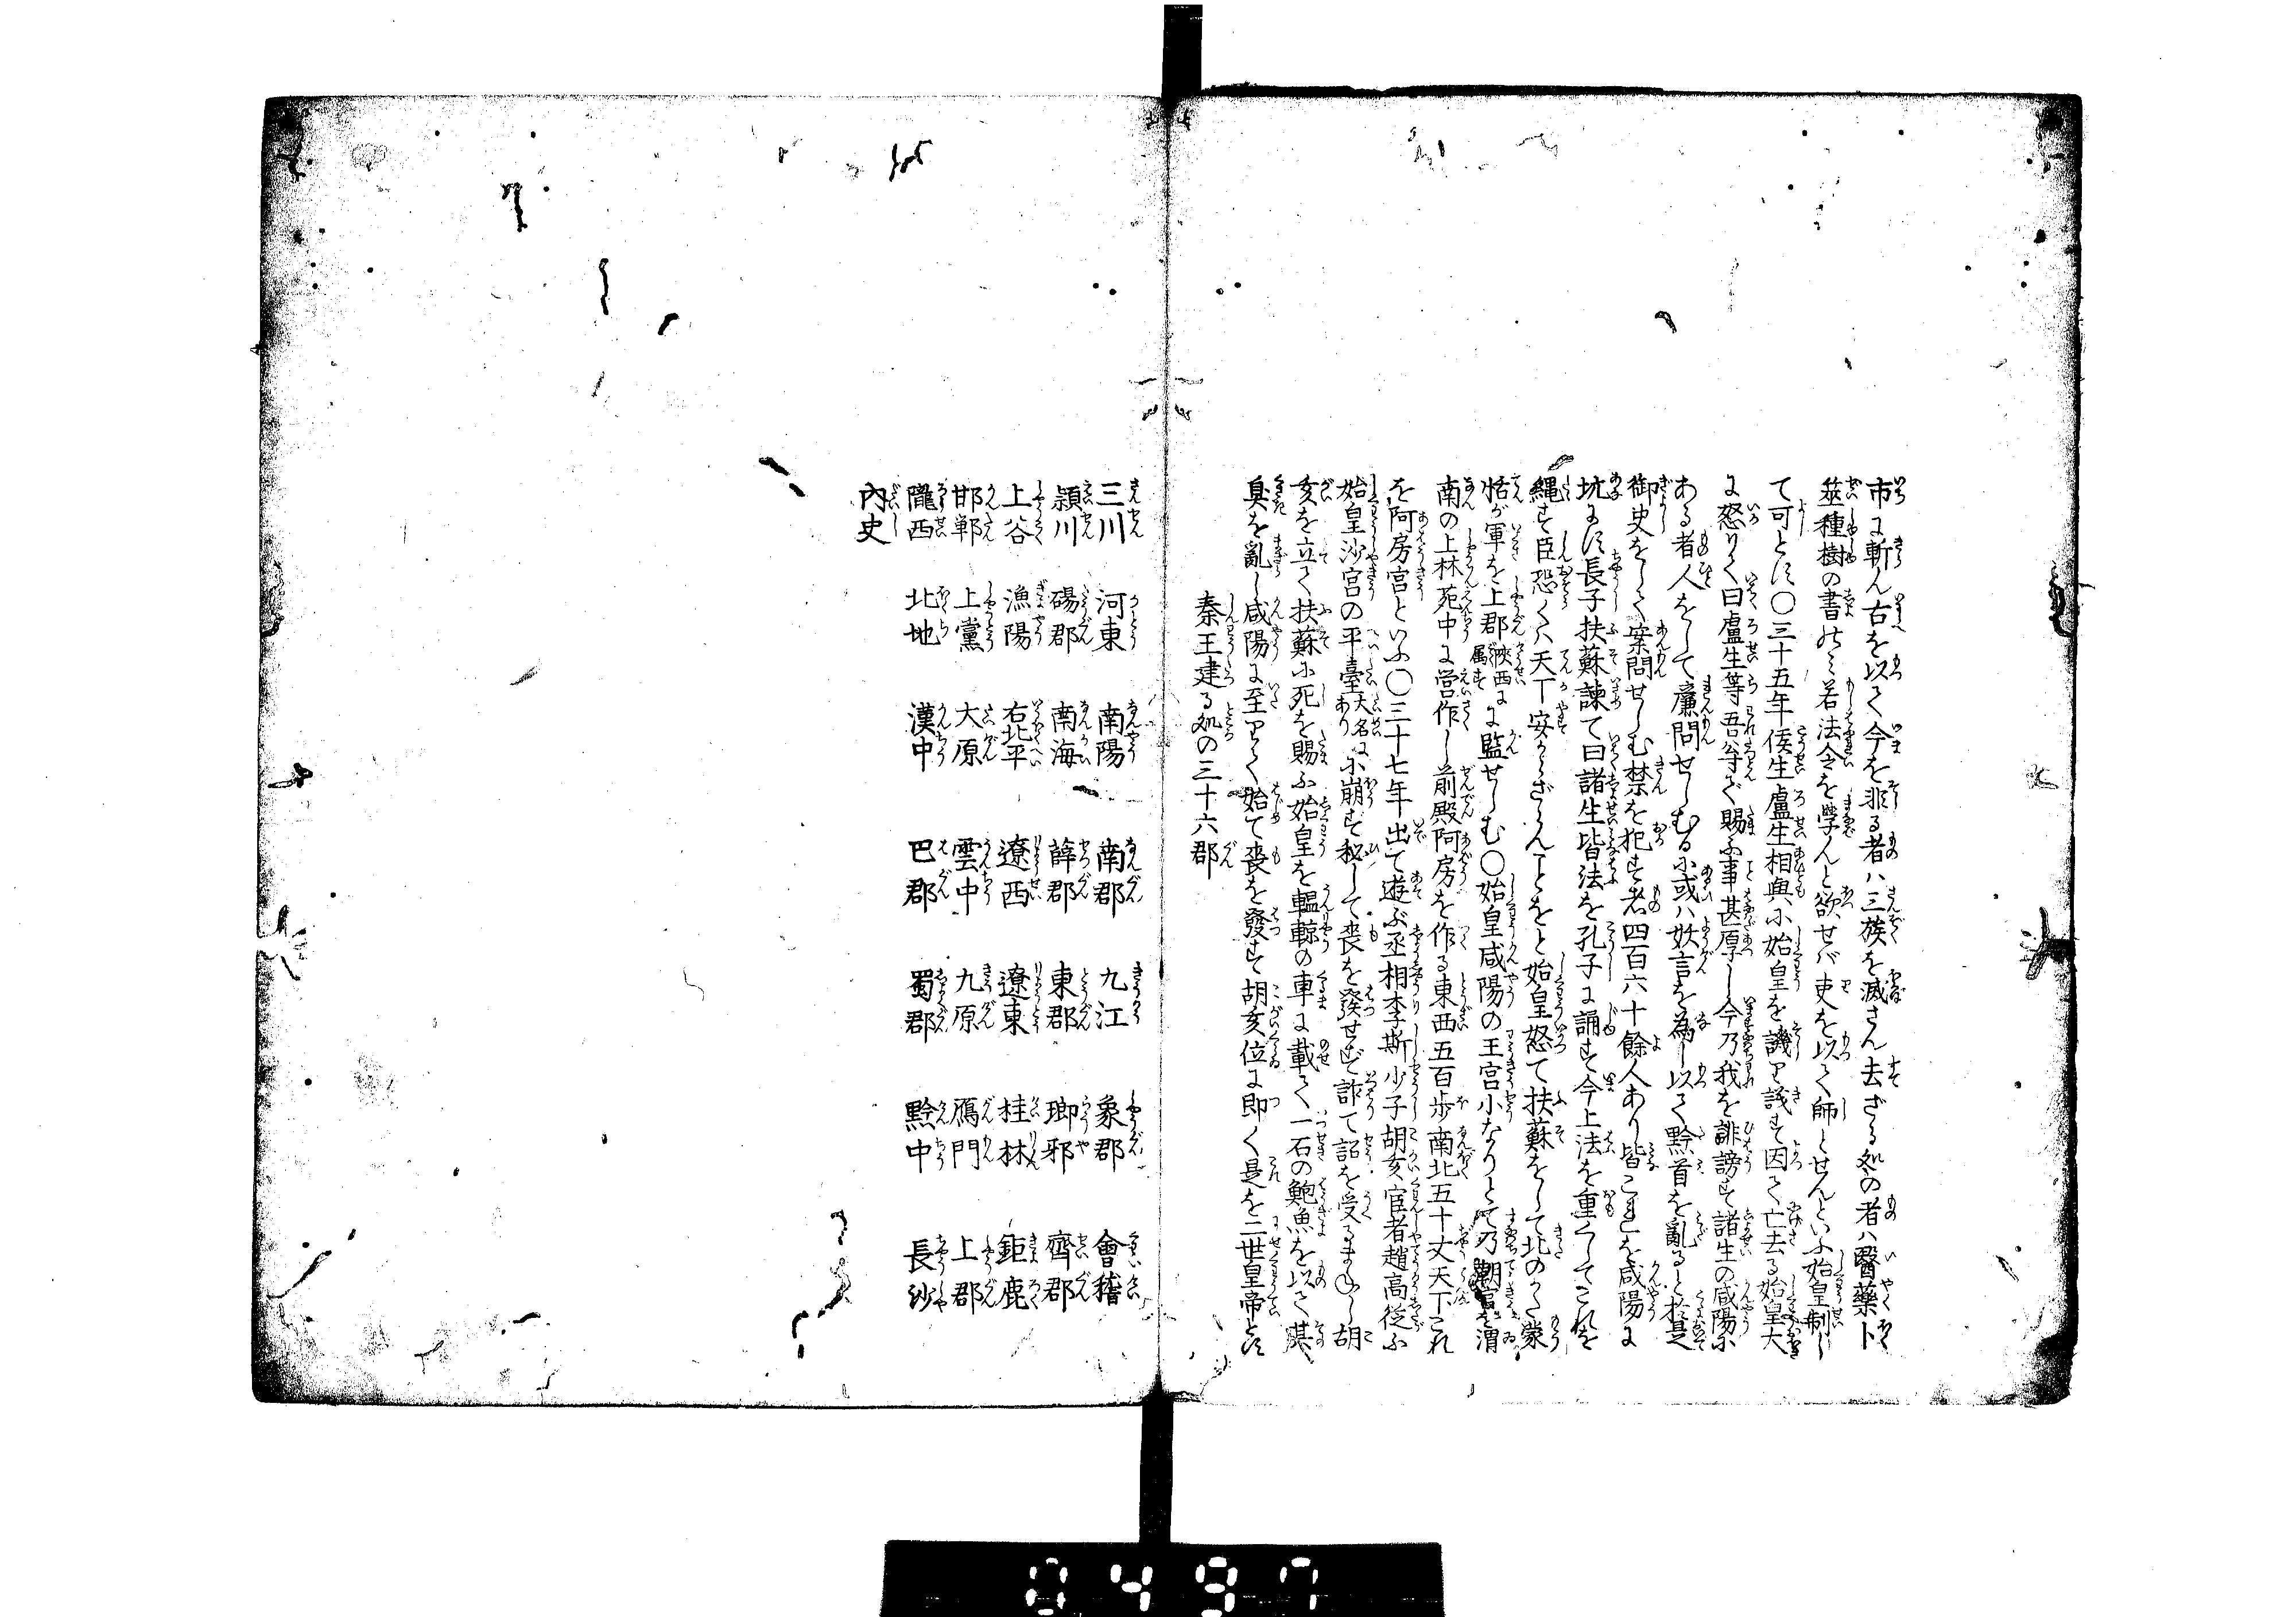 市に斬ん古を以て今を非る者ハ三族を滅さん去ざる処の者ハ醫藥卜
筮種樹の書のミ若法令を學んと欲せバ吏を以て師とせんといふ始皇制し
て可とす〇三十五年侯生盧生相與に始皇を譏り議す因て亡去る始皇大
に怒りて曰盧生等吾尊で賜ふ事甚厚し今乃我を誹謗す諸生の咸陽に
ある者人をして廉問せしむるに或ハ妖言を為し以て黔首を亂ると於是
御史をして案問せしむ禁を犯す者四百六十餘人あり皆これを咸陽に
坑にす長子扶蘇諫て曰諸生皆法を孔子に誦す今上法を重くしてこれを
縄す臣恐くハ天下安からざらんことをと始皇怒て扶蘇をして北のかた蒙
恬が軍を上郡陜西に属すに監せしむ〇始皇咸陽の王宮小なりとて乃朝宮を渭
南の上林苑中に営作し前殿阿房を作る東西五百歩南北五十丈天下これ
を阿房宮といふ〇三十七年出て遊ぶ丞相李斯少子胡亥宦者趙高從ふ
始皇沙宮の平臺大名にありに崩す秘して喪を發せず詐て詔を受るまねし胡
亥を立て扶蘇に死を賜ふ始皇を轀輬の車に載て一石の鮑魚を以て其
臭を亂し咸陽に至りて始て喪を發す胡亥位に即く是を二世皇帝とす
秦王建る処の三十六郡
三川 河東 南陽 南郡 九江 象郡 會稽
潁川 碭郡 南海 薛郡 東郡 瑯邪 齊郡
上谷 漁陽 右北平 遼西 遼東 桂林 鉅鹿
邯鄲 上黨 大原 雲中 九原 鴈門 上郡
隴西 北地 漢中 巴郡 蜀郡 黔中 長沙
內史
0497